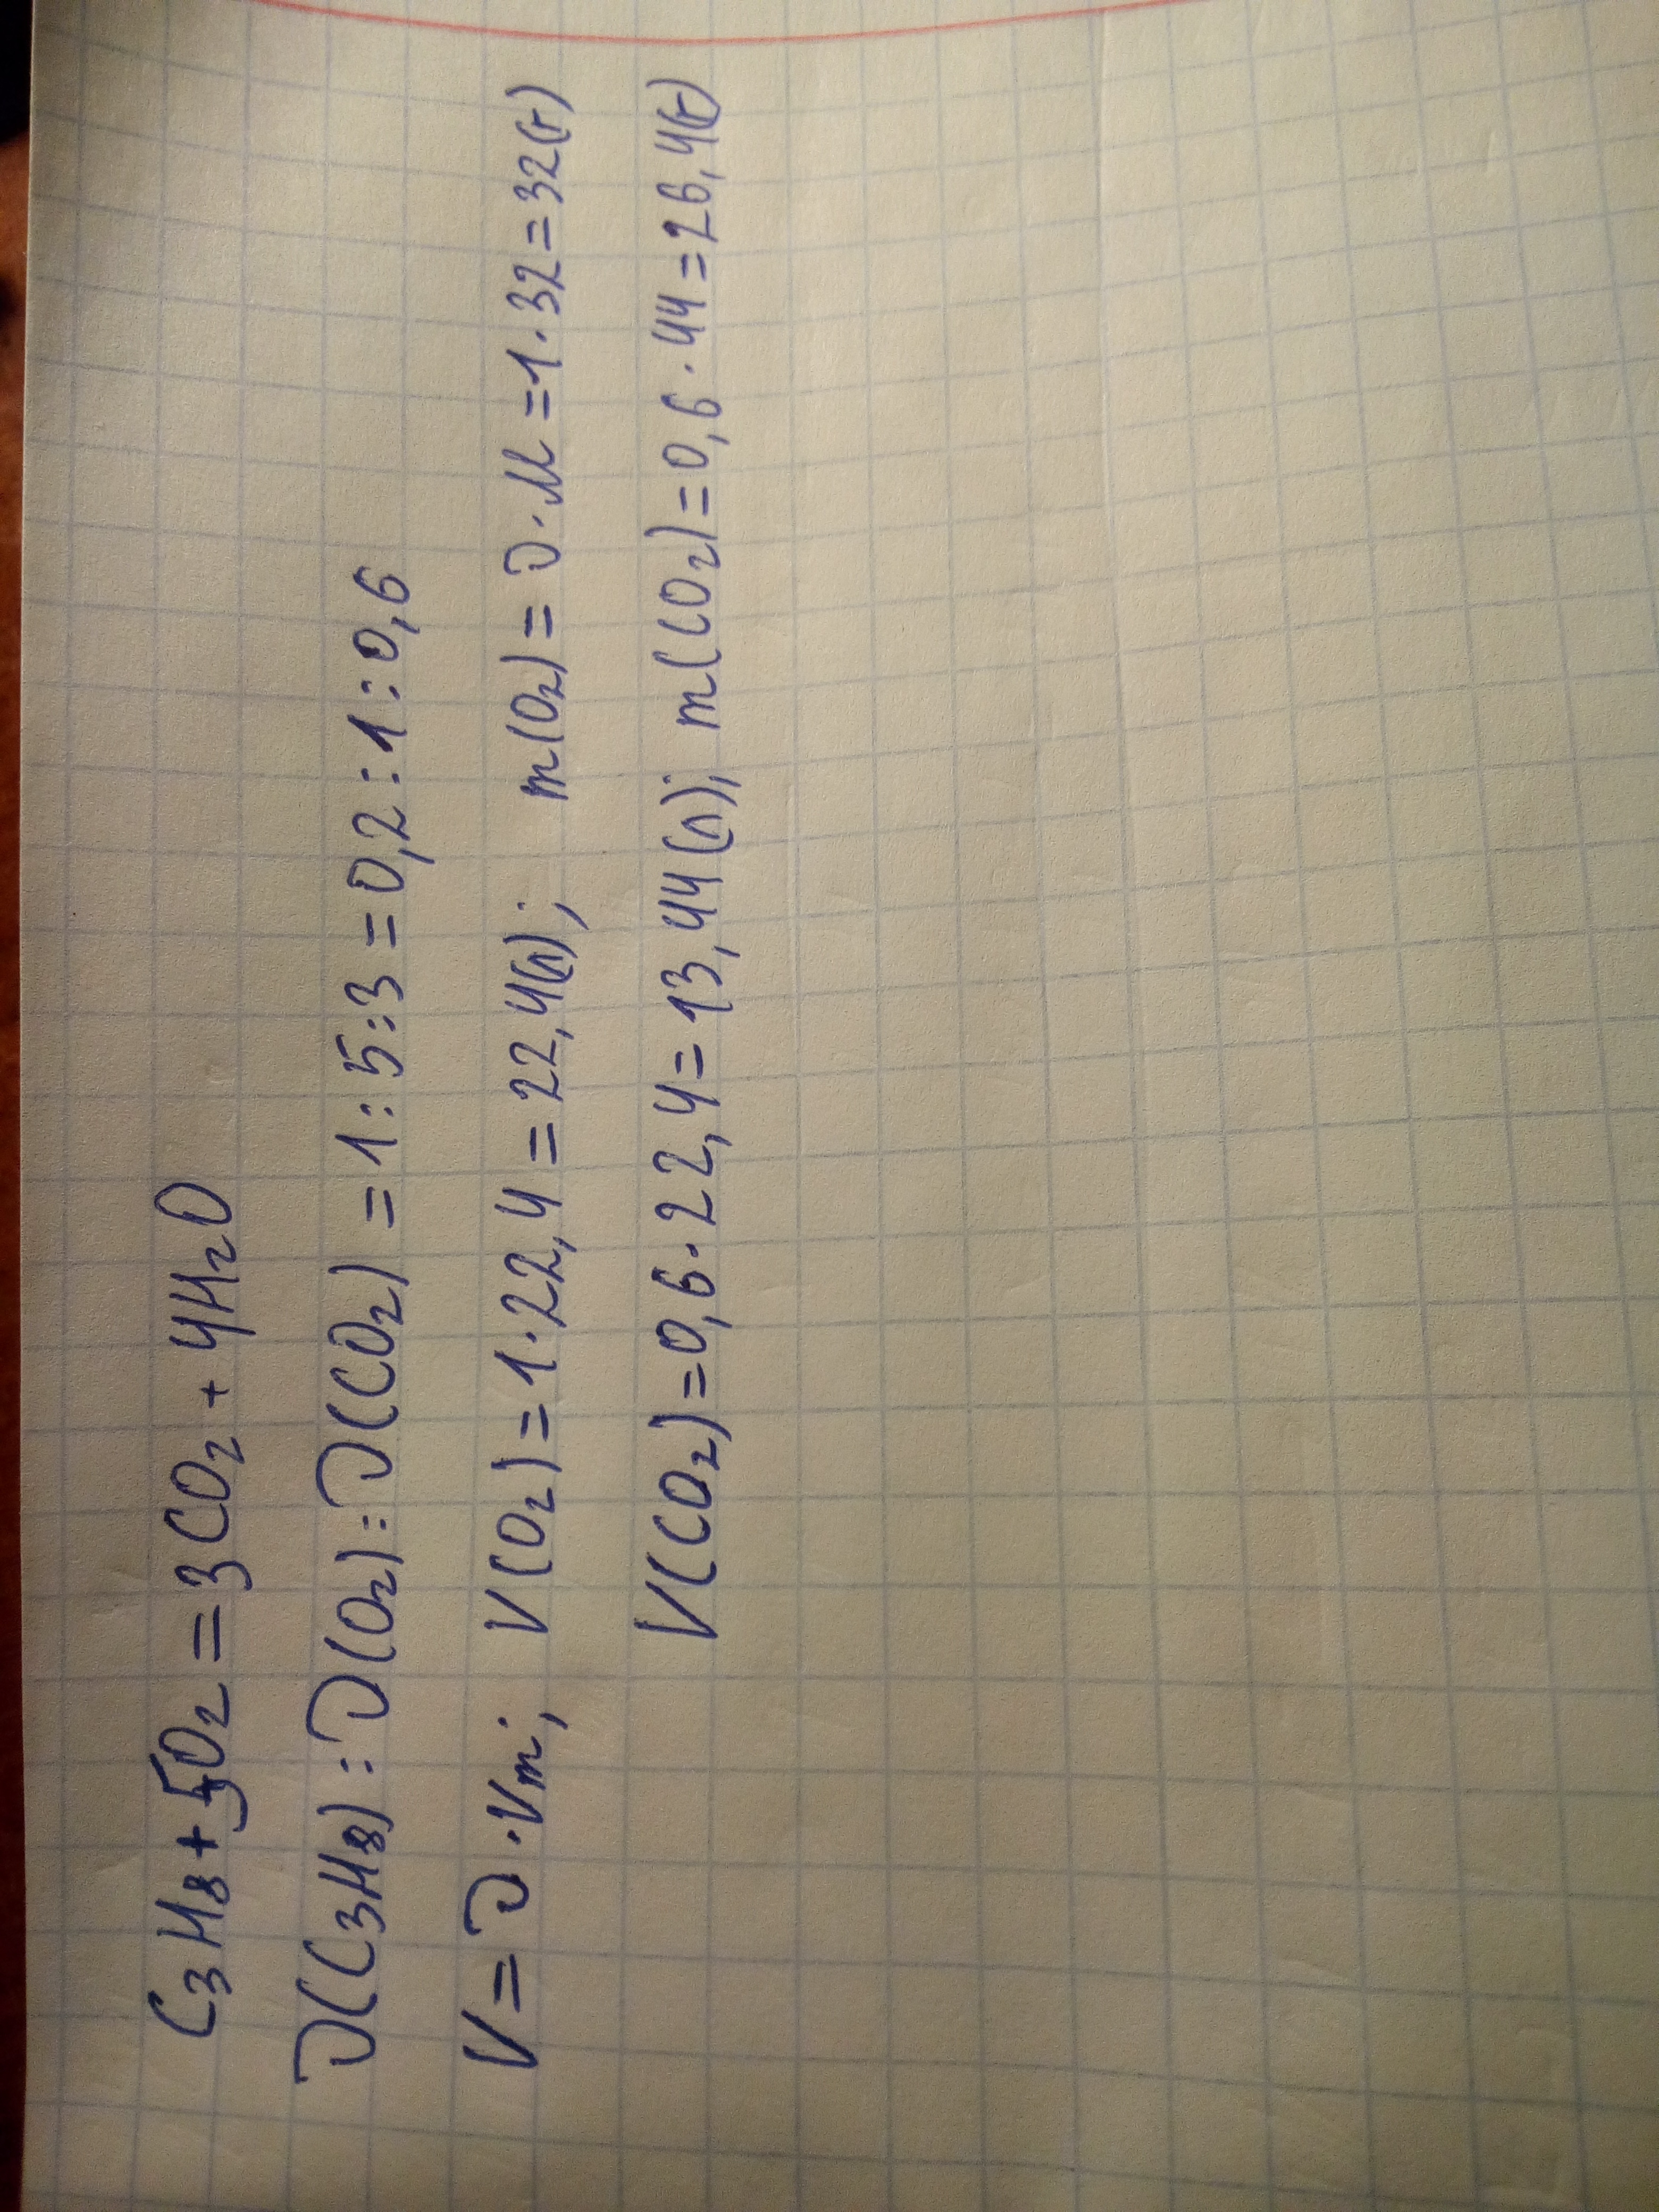 C₃H₈+5O₂=3CO₂+4H₂O
ν(C₃H₈):ν(O₂):ν(CO₂)=1:5:3=0,2:1:0,6
V=ν·Vm; V(O₂)=1·22,4=22,4(л); m(O₂)=ν·M=1·32=32(г)
V(CO₂)=0,6·22,4=13,44(л); m(CO₂)=0,6·44=26,4(г)